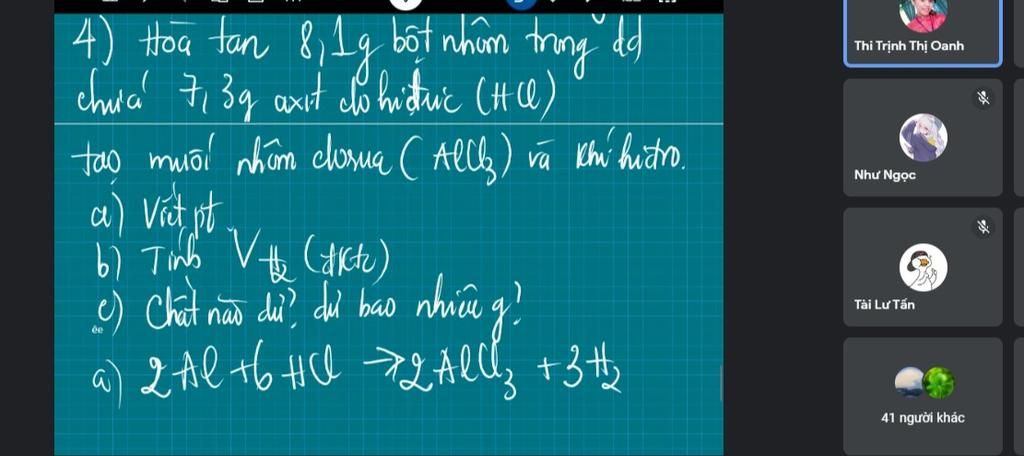 4) Hòa tan 8,1g bột nhôm trong dd
chứa 7,3g axit clohidric (HCl)
tạo muối nhôm clorua (AlCl3) và khí hidro.
a) Viết pt
b) Tính V H2 (đktc)
c) Chất nào dư? dư bao nhiêu g?
êe
a) 2Al + 6HCl → 2AlCl3 + 3H2
Thi Trịnh Thị Oanh
Như Ngọc
Tài Lư Tấn
41 người khác